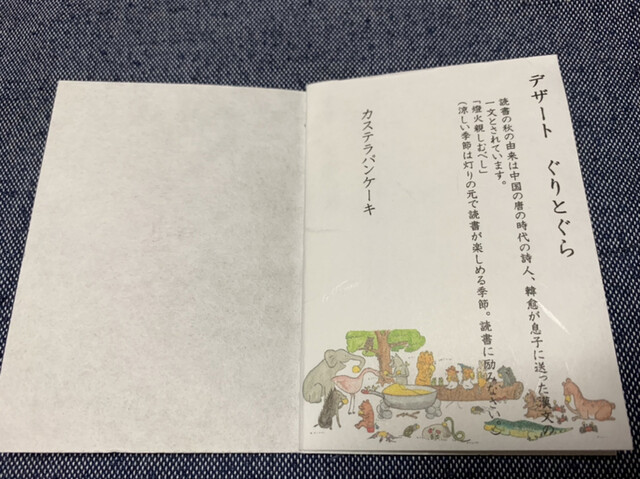 デザート　ぐりとぐら
読書の秋の由来は中国の唐の時代の詩人、韓愈が息子に送った漢文の
一文とされています。
「燈火親しむべし」
(涼しい季節は灯りの元で読書が楽しめる季節。読書に励みなさい
カステラパンケーキ